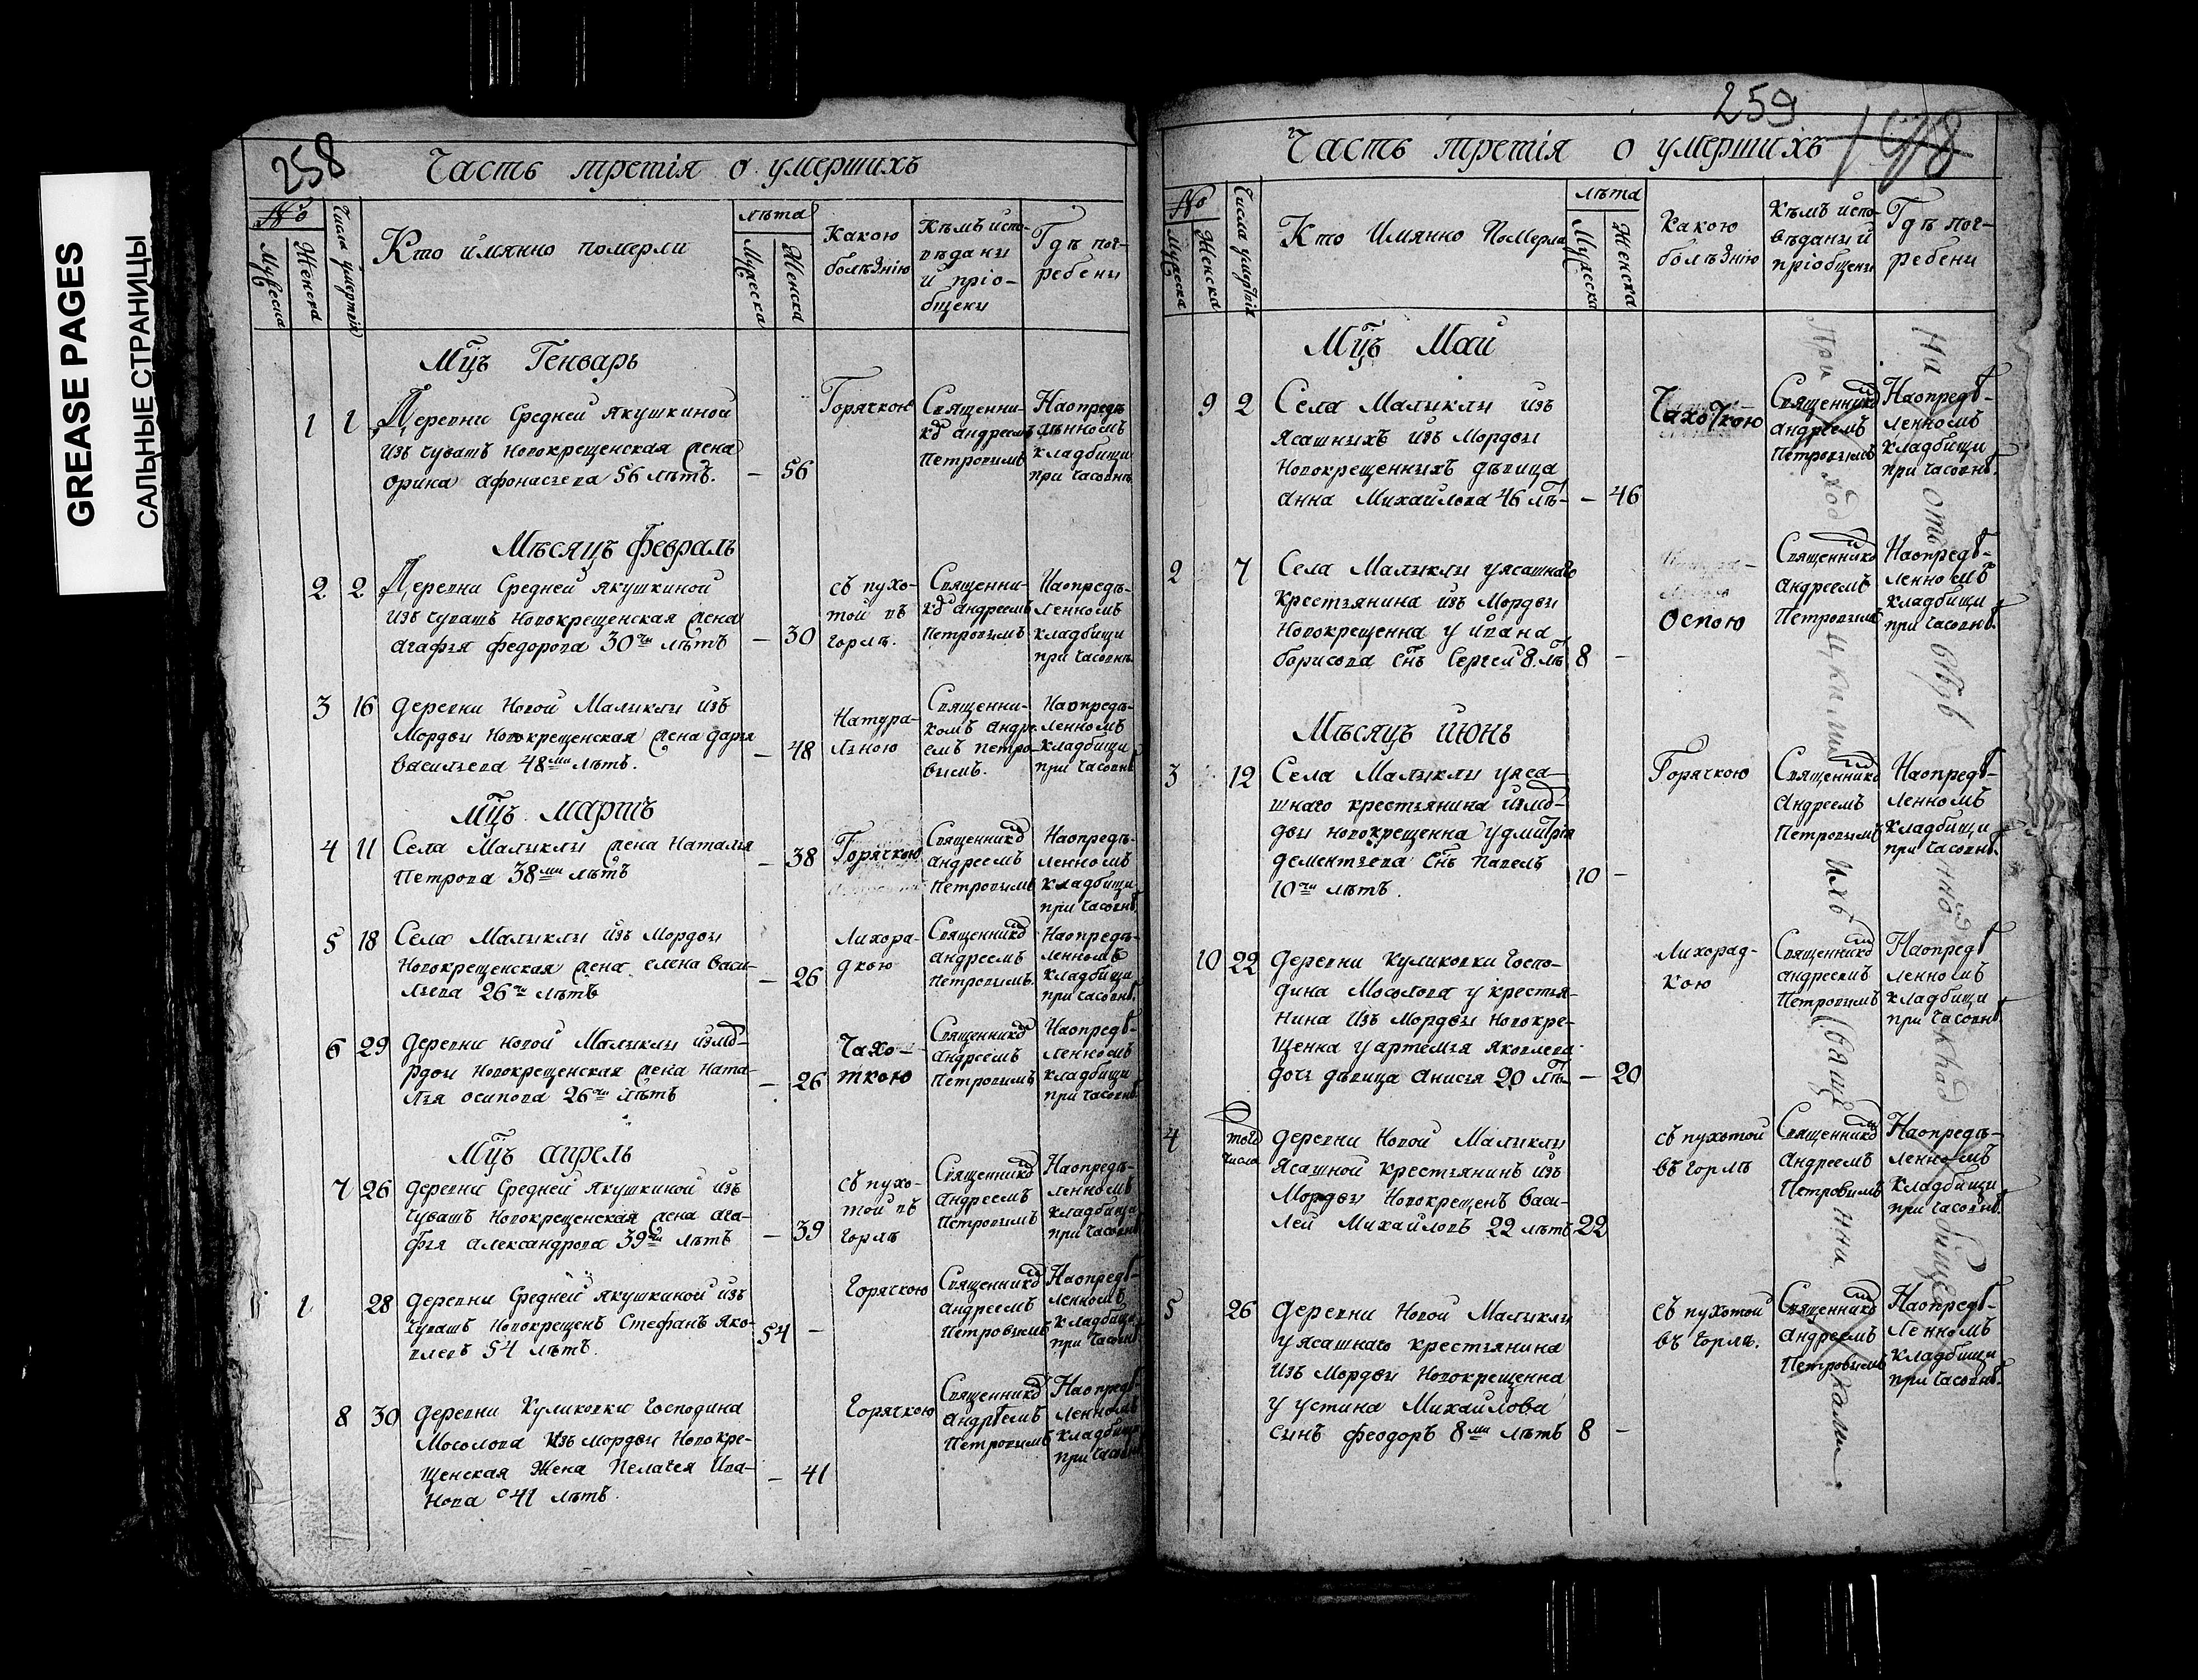 GREASE PAGES
САЛЬНЫЕ СТРАНИЦЫ
258
Часть третія о умершихъ
№
Мужеска
Женска
Числа умертвія
Кто имянно померли
лѣта
Мужеска
Женска
Какою
болѣзнію
Кѣмъ испо-
вѣданы
и пріо-
бщены
Гдѣ пог-
ребены
Мцъ Генварь
1 1 Деревни Средней Якушкиной
изъ чувашъ новокрещенская жена
орина афонасьева 56 лѣтъ. — 56
Горячкою
Священни-
комъ андреемъ
Петровымъ
Наопредѣ-
ленномъ
кладбищи
при часовнѣ
Мѣсяцъ февраль
2 2 Деревни Средней якушкиной
изъ чувашъ новокрещенская жена
агафья федорова 30ти лѣтъ — 30
съ пухо-
той въ
горлѣ.
Священни-
комъ андреемъ
Петровымъ
Наопредѣ-
ленномъ
кладбищи
при часовнѣ
3 16 деревни Новой Малыклы изъ
Мордвы новокрещенская жена дарья
васильева 48ми лѣтъ. — 48
Натура-
льною
Священни-
комъ андре-
емъ петро-
вымъ.
Наопредѣ-
ленномъ
кладбищи
при часовнѣ
Мцъ мартъ
4 11 Села Малыклы жена Наталья
Петрова 38ми лѣтъ — 38
Горячкою
Священникомъ
андреемъ
Петровымъ
Наопредѣ-
ленномъ
кладбищи
при часовнѣ.
5 18 Села Малыклы изъ мордвы
Новокрещенская жена елена васи-
льева 26ти лѣтъ — 26
Лихора-
дкою
Священникомъ
андреемъ
Петровымъ.
Наопредѣ-
ленномъ
кладбищи
при часовнѣ.
6 29 деревни новой Малыклы измо-
рдвы новокрещенская жена ната-
лья осипова 26ти лѣтъ — 26
Чахо-
ткою
Священникомъ
андреемъ
Петровымъ
Наопредѣ-
ленномъ
кладбищи
при часовнѣ.
Мцъ апрель
7 26 деревни Средней якушкиной изъ
чувашъ новокрещенская жена ага-
фья александрова 39ти лѣтъ — 39
съ пухо-
той въ
горлѣ
Священникомъ
андреемъ
Петровымъ
Наопредѣ-
ленномъ
кладбищи
при часовнѣ
1 28 деревни Средней якушкиной изъ
чувашъ новокрещенъ Стефанъ яко-
влевъ 54 лѣтъ. 54 —
Горячкою
Священникомъ
андреемъ
Петровымъ
Наопредѣ-
ленномъ
кладбищи
при часовнѣ
8 30 деревни Куликовки господина
Мосолова изъ мордвы новокре-
щенская жена Пелагея Ива-
нова 41 лѣтъ. — 41
Горячкою
Священникомъ
андрѣемъ
Петровымъ
Наопредѣ-
ленномъ
кладбищи
при часовнѣ
259
198
Часть третія о умершихъ
№
Мужеска
Женска
Числа умертвія
Кто Имянно Померли
лѣта
Мужеска
Женска
Какою
болѣзнію
Кѣмъ испо-
вѣданы и
пріобщены
Гдѣ пог-
ребены
Мцъ Май
9 2 Села Малыклы изъ
ясашныхъ изъ мордвы
новокрещенныхъ дѣвица
анна Михайлова 46 лѣ- — 46
Чахоткою
Священникомъ
андреемъ
Петровымъ
Наопредѣ-
ленномъ
кладбищи
при часовнѣ.
2 7 Села Малыклы уясашнаго
крестьянина изъ мордвы
новокрещенна у ивана
борисова снъ Сергей 8. лѣ 8 —
Оспою
Священникомъ
андреемъ
Петровымъ
Наопредѣ-
ленномъ
кладбищи
при часовнѣ.
Мѣсяцъ июнь
3 12 Села Малыклы уяса-
шнаго крестьянина измор-
двы новокрещенна удмитрія
дементьева снъ Павелъ
10ти лѣтъ. 10 —
Горячкою
Священникомъ
Андреемъ
Петровымъ
Наопредѣ-
ленномъ
кладбищи
при часовнѣ.
10 22 деревни Куликовки госпо-
дина Мосолова у крестья-
нина изъ мордвы новокре-
щенна уартемья яковлева
дочь дѣвица анисья 20 лѣ — 20
Лихорад-
кою
Священникомъ
андреемъ
Петровымъ
Наопредѣ-
ленномъ
кладбищи
при часовнѣ.
4 того числа деревни Новой Малыклы
ясашной крестьянинъ изъ
мордвы новокрещенъ васи-
лей Михайловъ 22 лѣтъ 22
съ пухотой
въ горлѣ
Священникомъ
Андреемъ
Петровымъ
Наопредѣ-
ленномъ
кладбищи
при часовнѣ.
5 26 деревни Новой Малыклы
уясашнаго крестьянина
изъ мордвы новокрещенна
у устина Михайлова
сынъ феодоръ 8ми лѣтъ 8 —
съ пухотой
въ горлѣ.
Священникомъ
андреемъ
Петровымъ
Наопредѣ-
ленномъ
кладбищи
при часовнѣ.